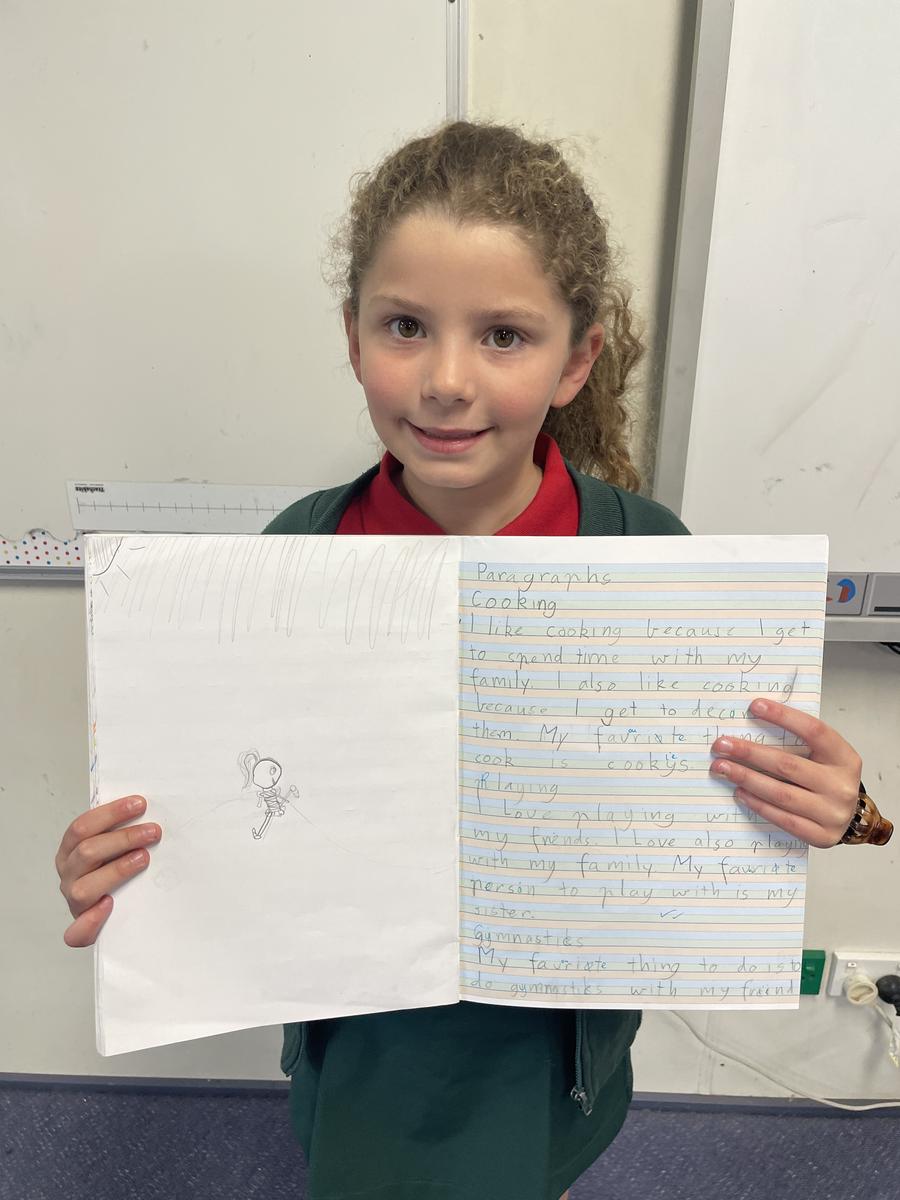 Paragraphs
Cooking
I like cooking because I get
to spend time with my
family. I also like cooking
because I get to decor
them. My favrite thing to
cook is cookys.
Playing
I Love playing with
my friends. I Love also playin
with my family. My favrite
person to play with is my
sister.
Gymnastics
My favrite thing to do is to
do gymnastiks with my friend